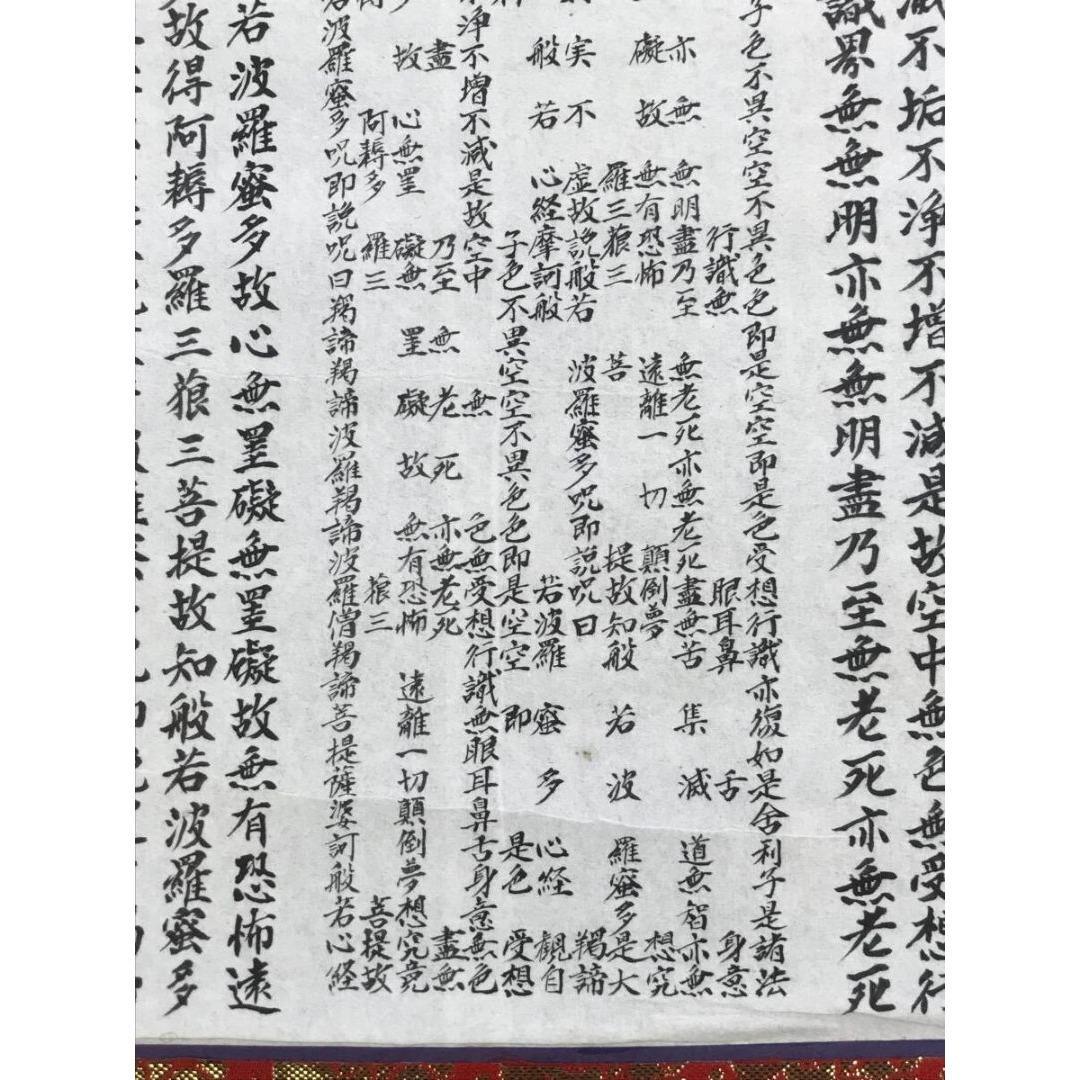 不垢不浄不増不減是故空中無色無受想行
識界無無明亦無無明盡乃至無老死亦無老死
子色不異空空不異色色即是空空即是色受想行識亦復如是舍利子是諸法
行識無 眼耳鼻 舌 身意
亦無 無明盡乃至 無老死亦無老死盡無苦 集 滅 道無智亦無
礙故 無有恐怖 遠離一切 顛倒夢 想究
羅三藐三 菩 提故知般 若 波 羅蜜多是大
実不 虚故説般若 波羅蜜多呪即説呪曰 羯諦
般若 心経摩訶般 若波羅 蜜 多 心経 観自
子色不異空空不異色色即是空空 即 是色 受想
浄不増不減是故空中 無 色無受想行識無眼耳鼻舌身意無色
盡 乃至 無 老 死 亦無老死 盡無
故 心無罣 礙無 罣 礙 故 無有恐怖 遠離一切顛倒夢想究竟
阿耨多 羅三 藐三 菩提故
若波羅蜜多呪即説呪曰羯諦羯諦波羅羯諦波羅僧羯諦菩提薩婆訶般若心経
若波羅蜜多故心無罣礙無罣礙故無有恐怖遠
故得阿耨多羅三藐三菩提故知般若波羅蜜多